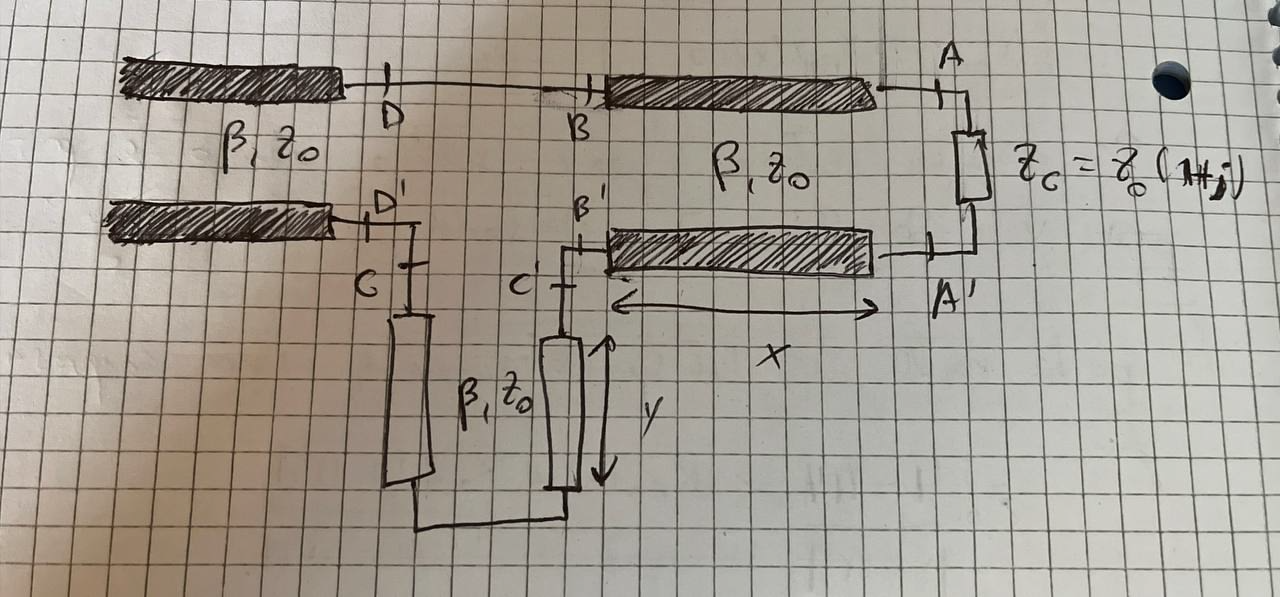 A
D
B
β, Z₀
β, Z₀
Z_C = Z₀ (1+j)
D'
B'
C
C'
A'
x
β, Z₀
y